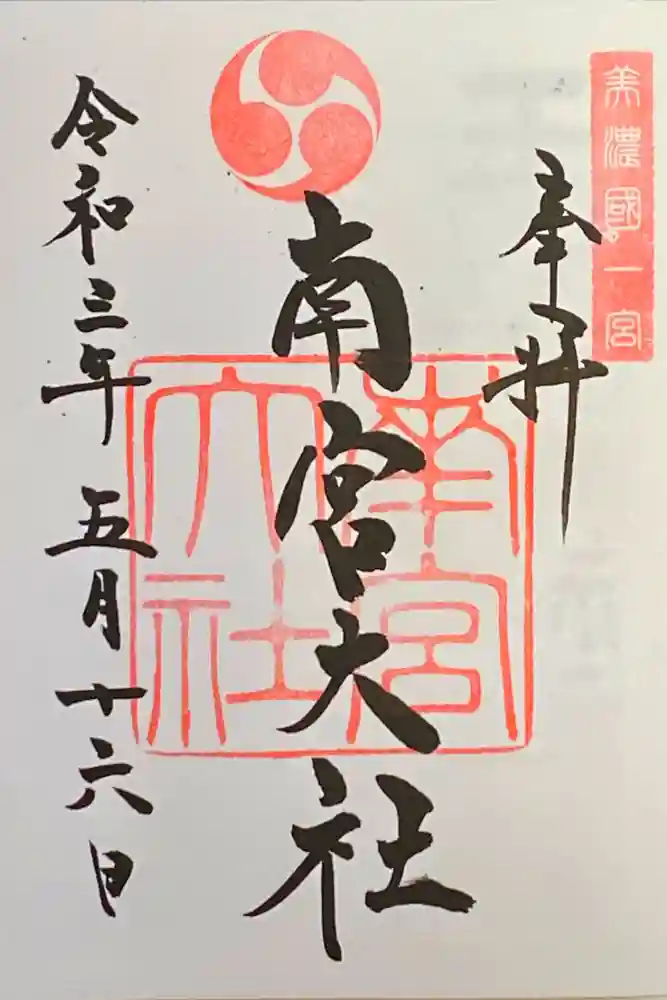 美濃國一宮
奉拝
南宮大社
南宮
大社
令和三年 五月十六日